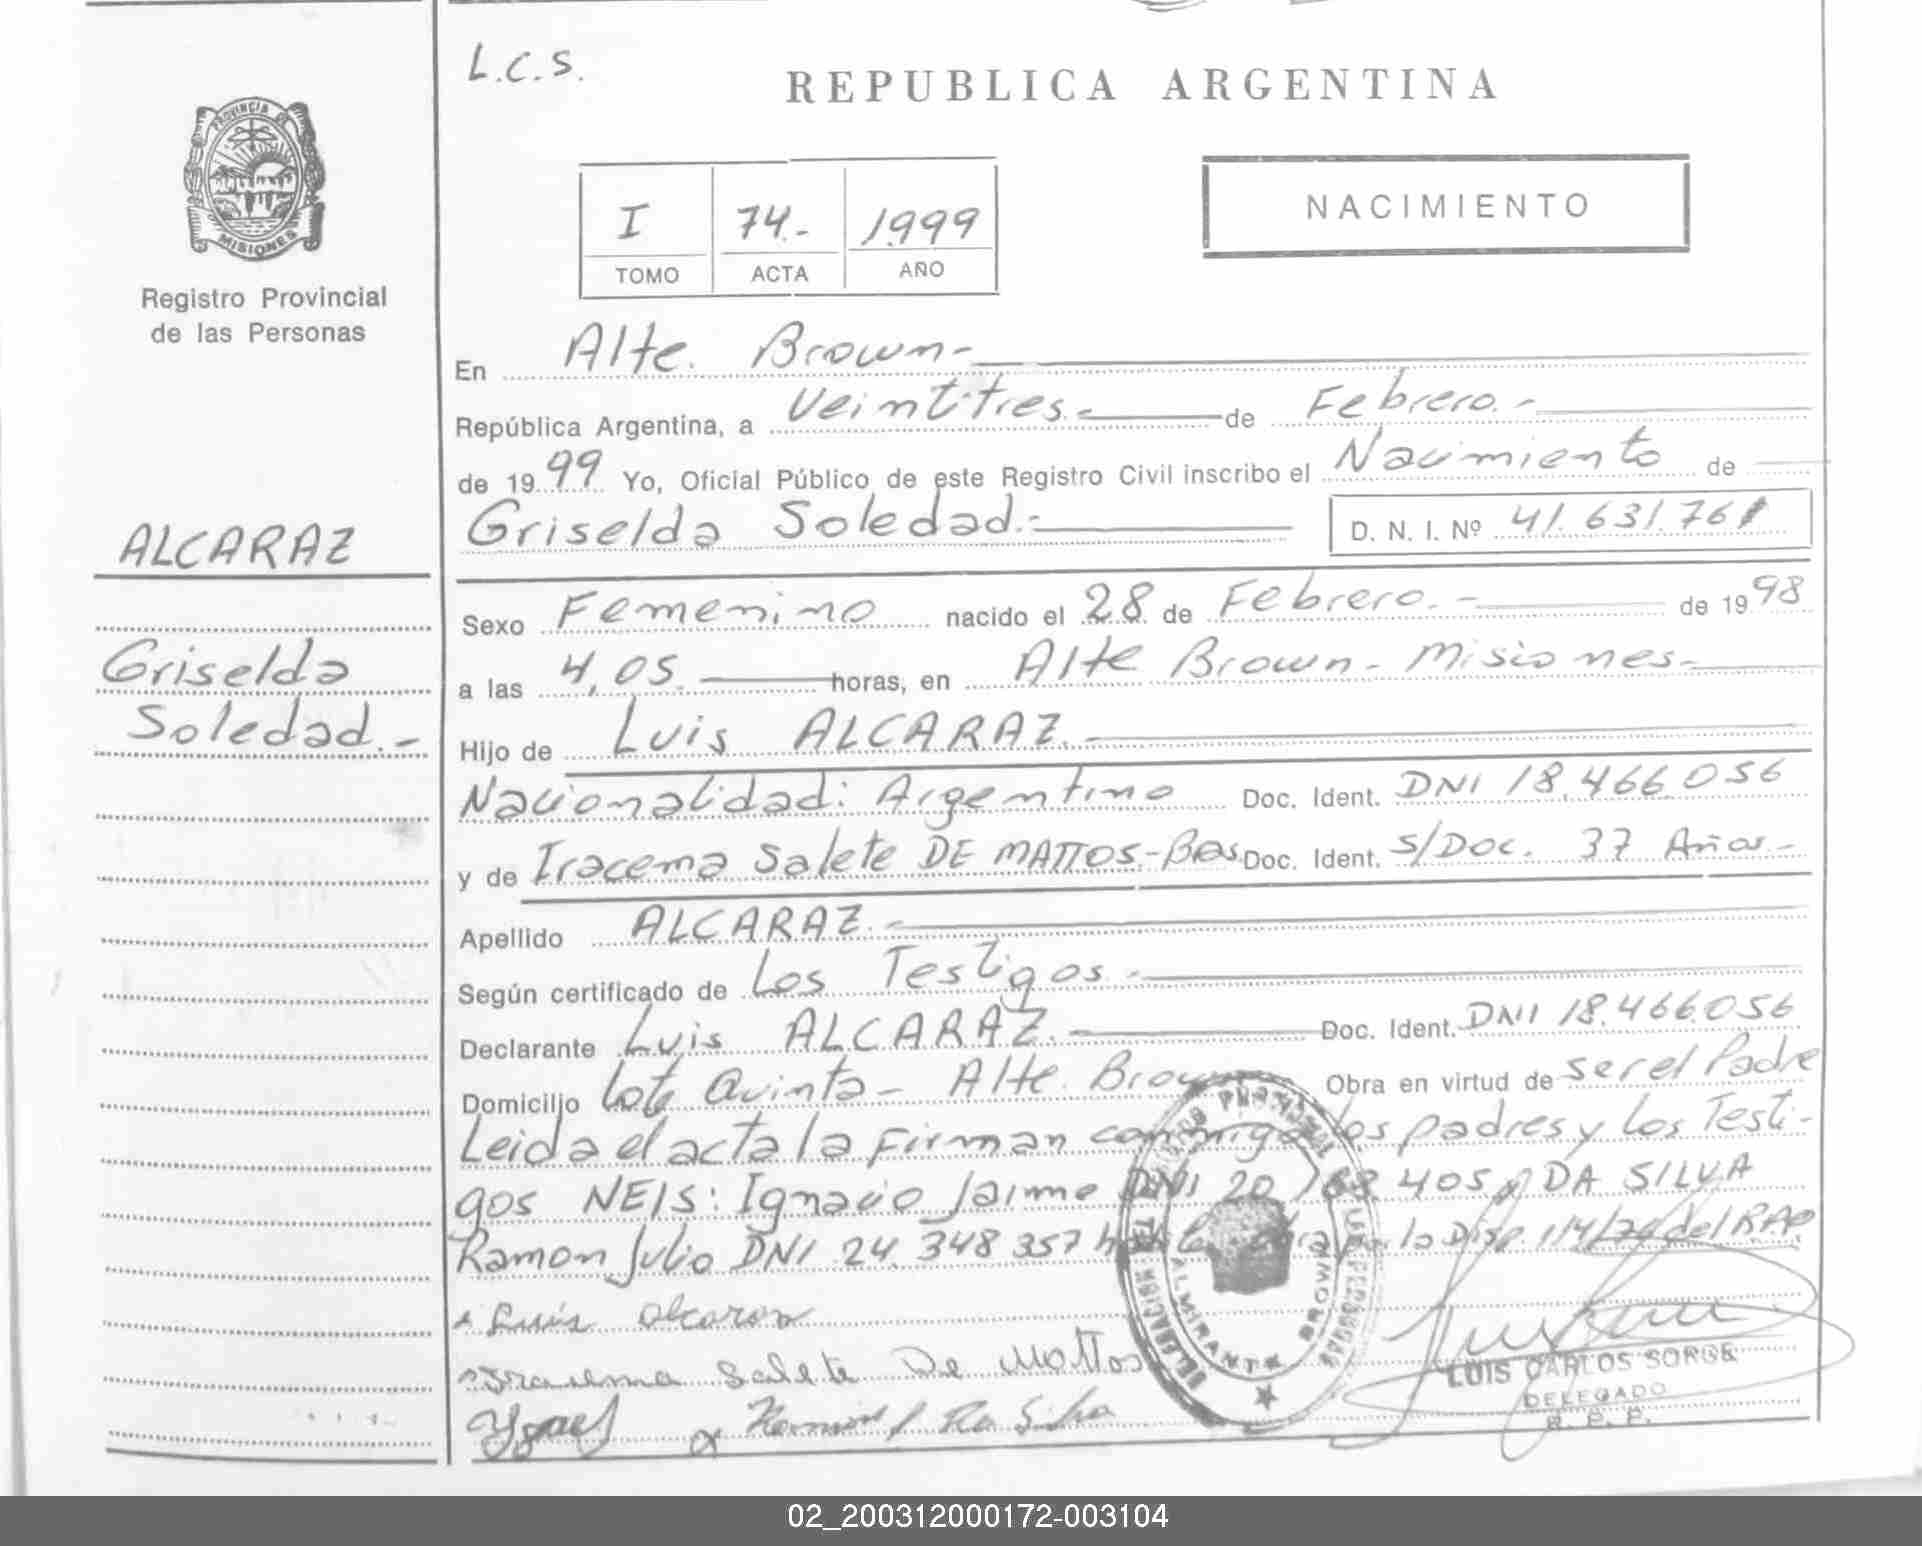 L.C.S.
REPUBLICA ARGENTINA
PROVINCIA DE
MISIONES
Registro Provincial
de las Personas
I 74.- 1999
TOMO ACTA AÑO
NACIMIENTO
En Alte. Brown-
República Argentina, a Veintitres.- de Febrero.-
de 1999 Yo, Oficial Público de este Registro Civil inscribo el Nacimiento de
Griselda Soledad.- D. N. I. Nº 41.631.761
ALCARAZ
Griselda
Soledad.-
Sexo Femenino nacido el 28 de Febrero.- de 1998
a las 4,05. horas, en Alte Brown- Misiones-
Hijo de Luis ALCARAZ.-
Nacionalidad: Argentino Doc. Ident. DNI 18.466.056
y de Iracema Salete DE MATTOS.-Bras Doc. Ident. S/Doc. 37 Años.-
Apellido ALCARAZ.-
Según certificado de Los Testigos.-
Declarante Luis ALCARAZ.- Doc. Ident. DNI 18.466.056
Domicilio Lote Quinta- Alte. Brown Obra en virtud de ser el Padre
Leida el acta la Firman conmigo los padres y los Testi-
gos NEIS: Ignacio Jaime DNI 20 405 y DA SILVA
Ramon Julio DNI 24.348.357 por la Disp 114/74 del R.P.P
Luis Alcaraz
Iracema Salete De Mattos
Ramon J Da Silva
ALMIRANTE BROWN
LUIS CARLOS SORGE
DELEGADO
R. P. P.
02_200312000172-003104